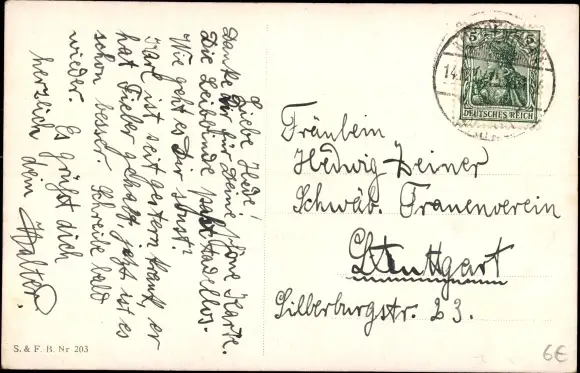 Liebe Hede!
Danke Dir für Deine schöne Karte.
Die Leibbinde paßt tadellos.
Wie geht es Dir sonst?
Karl ist seit gestern krank er
hat Fieber gehabt, jetzt ist es
schon besser. Schreibe bald
wieder. Es grüßt dich
herzlich dein Walter.
5 5
14.
DEUTSCHES REICH
Fräulein
Hedwig Zeiner
Schwäb. Frauenverein
Stuttgart
Silberburgstr. 23.
S. & F. B. Nr 203
6€